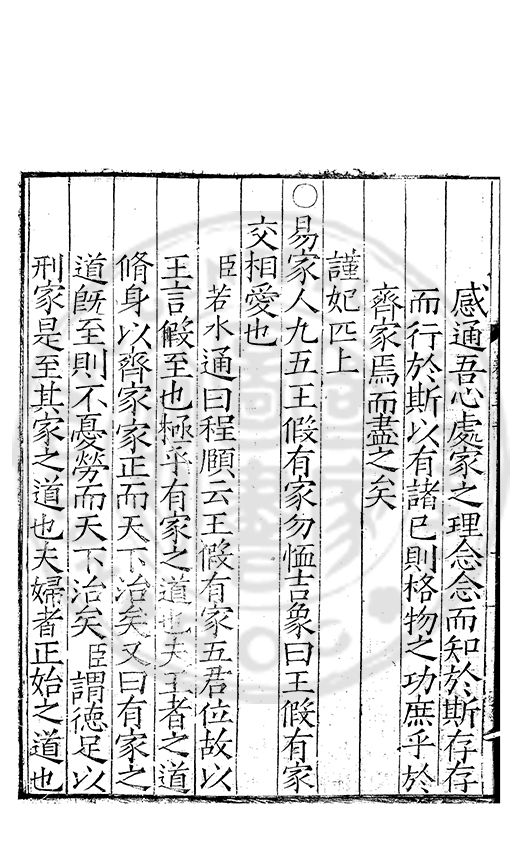 感通吾心處家之理念念而知於斯存存
而行於斯以有諸已則格物之功庶乎於
齊家焉而盡之矣
謹妃匹上
○易家人九五王假有家勿恤吉象曰王假有家
交相愛也
臣若水通曰程頤云王假有家五君位故以
王言假至也極乎有家之道也夫王者之道
脩身以齊家家正而天下治矣又曰有家之
道旣至則不憂勞而天下治矣臣謂德足以
刑家是至其家之道也夫婦者正始之道也